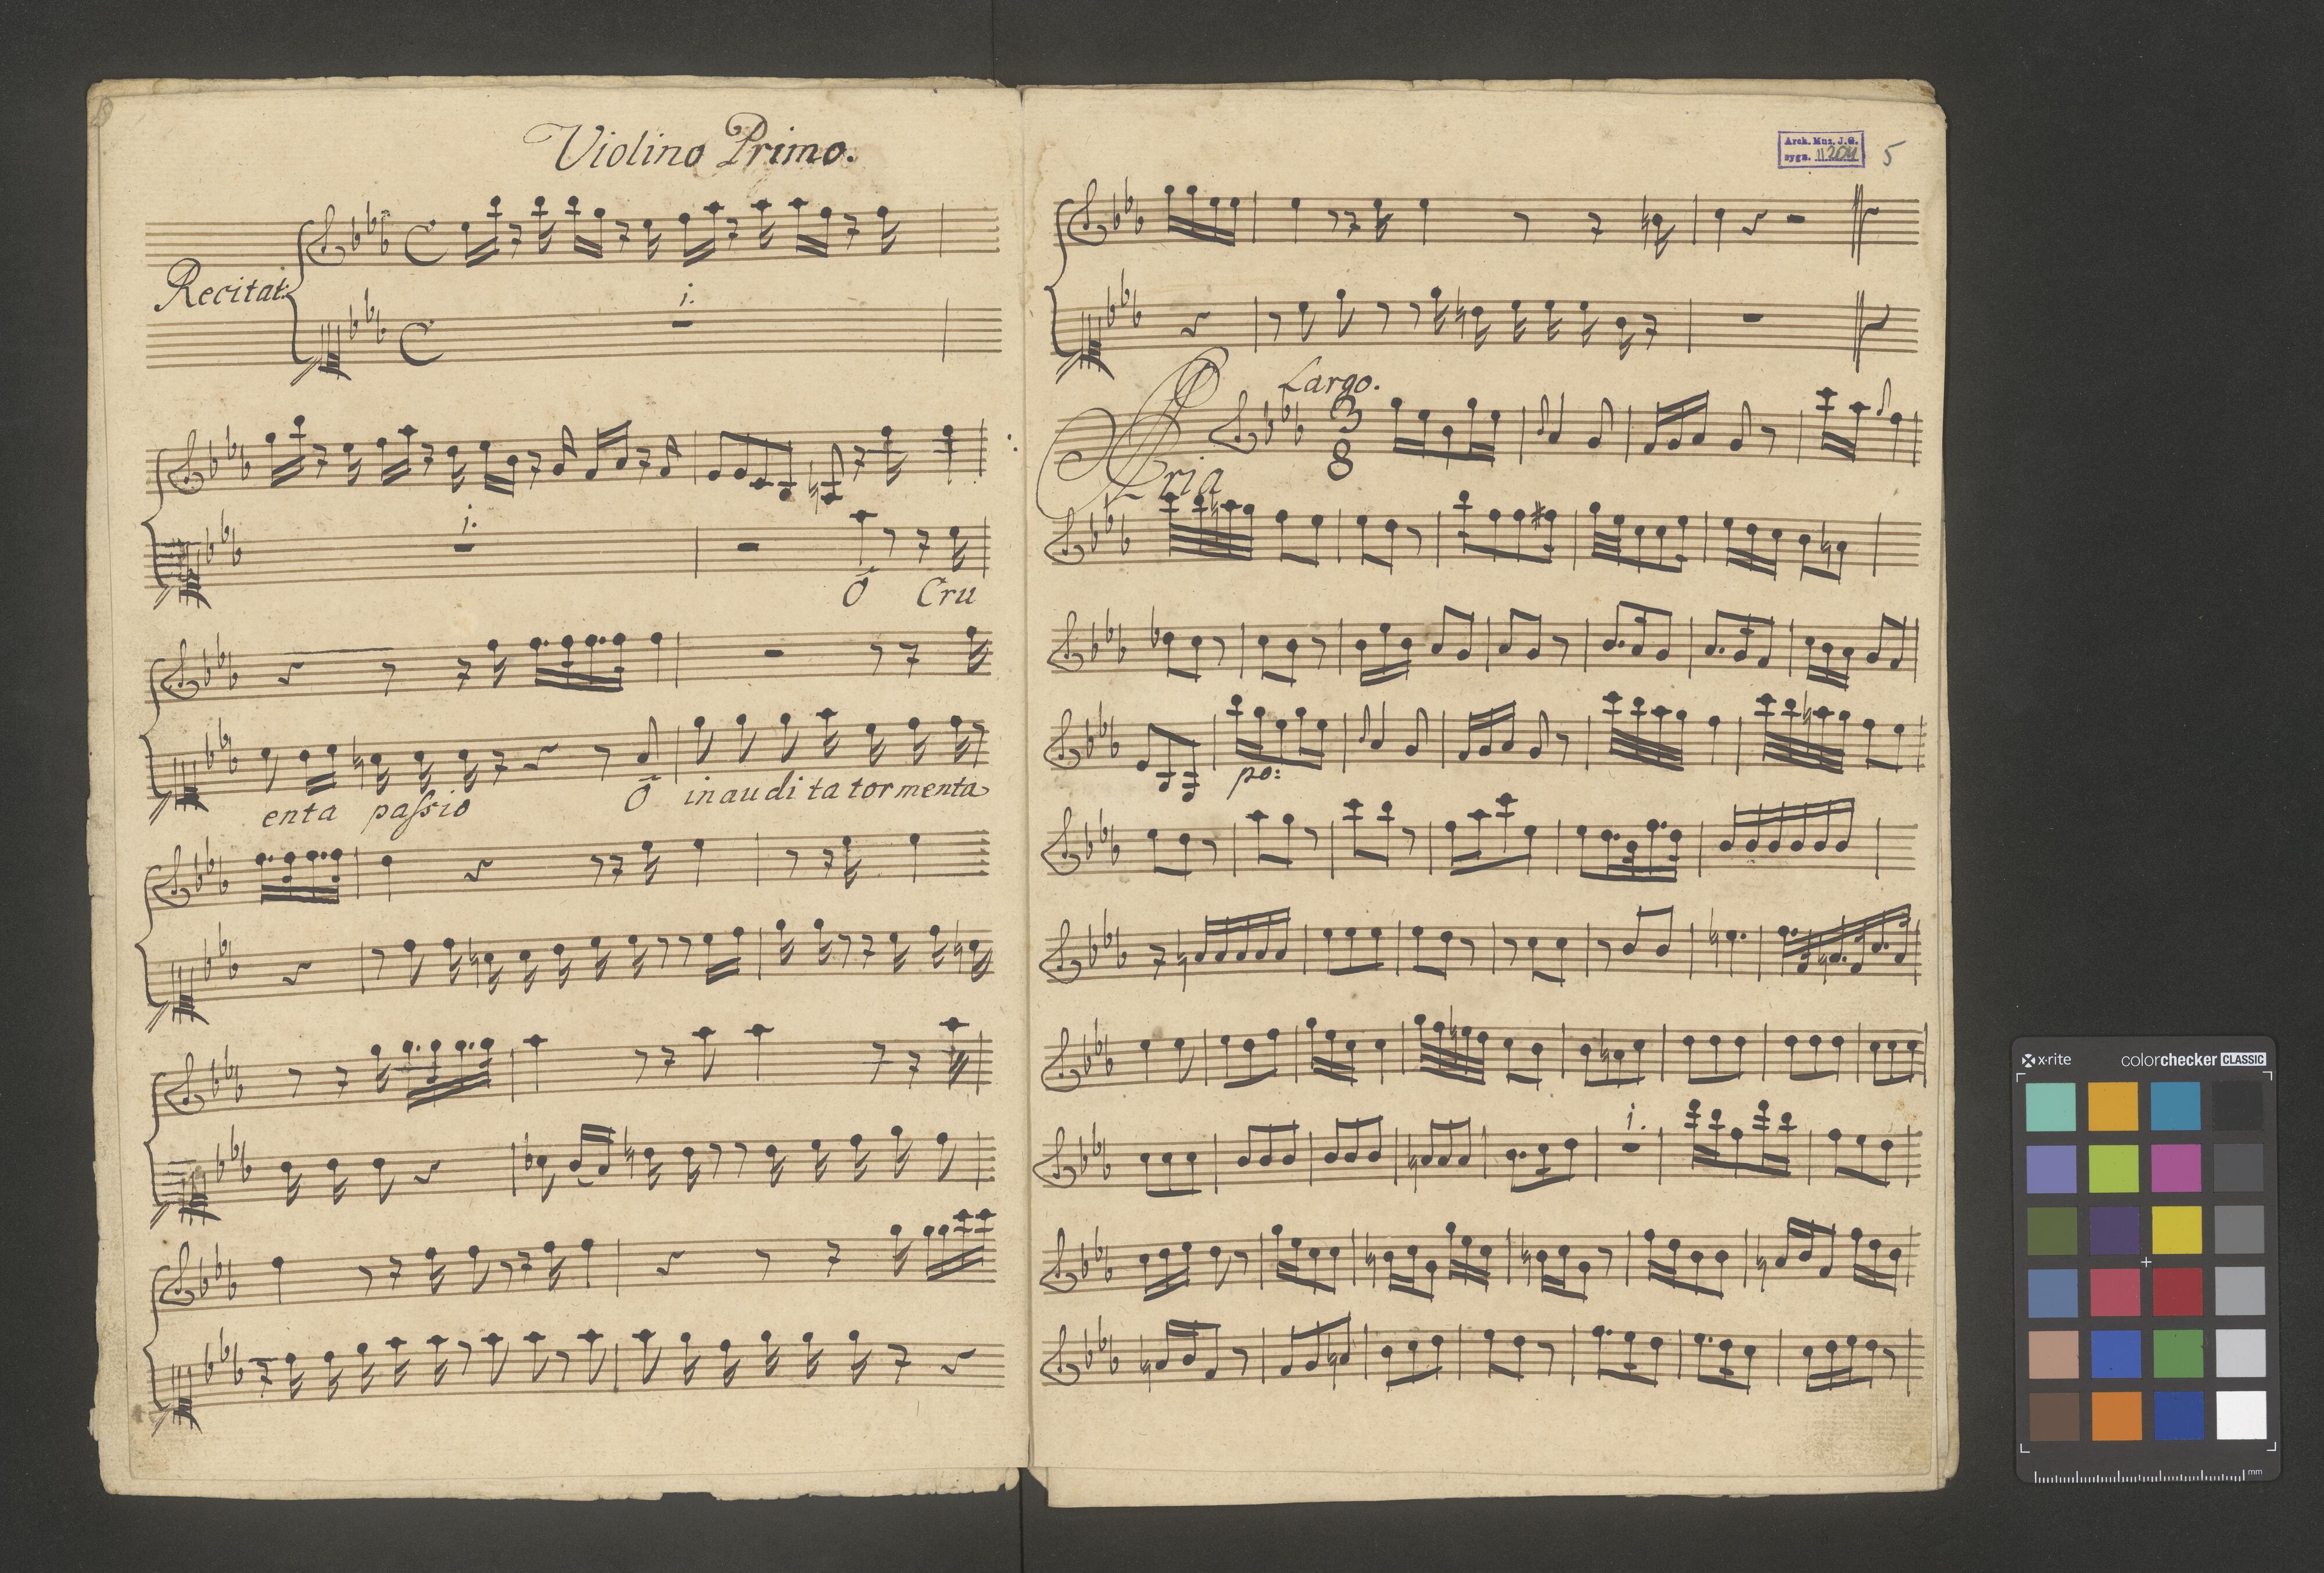 Violino Primo.
Recitat:
i.
i.
Ō Cru
enta passio Ō inaudita tormenta
Arch. Muz. J.G.
sygn. II 204
5
Largo.
3
8
Aria
po:
i.
x·rite colorchecker CLASSIC
mm